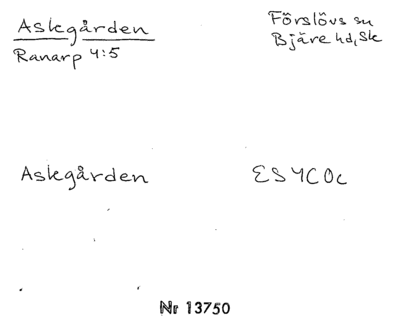 Askgården
Ranarp 4:5
Förslövs sn
Bjäre hd, Sk
Askgården
ES4COc
Nr 13750